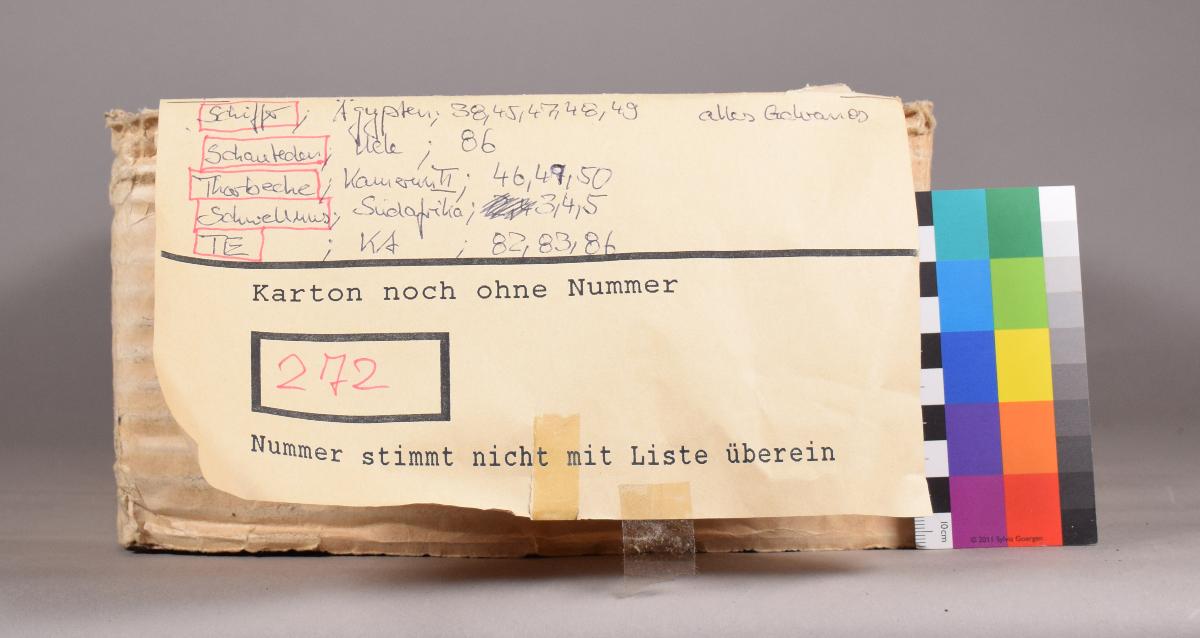 Schiffer; Ägypten; 38,45,47,48,49 alles Galvanos
Schanteden; Uele ; 86
Thorbecke; Kamerun II; 46,49,50
Schwellnus; Südafrika; 3,4,5
TE ; KA ; 82,83,86
Karton noch ohne Nummer
272
Nummer stimmt nicht mit Liste überein
10cm
© 2011 Sylvia Goergen